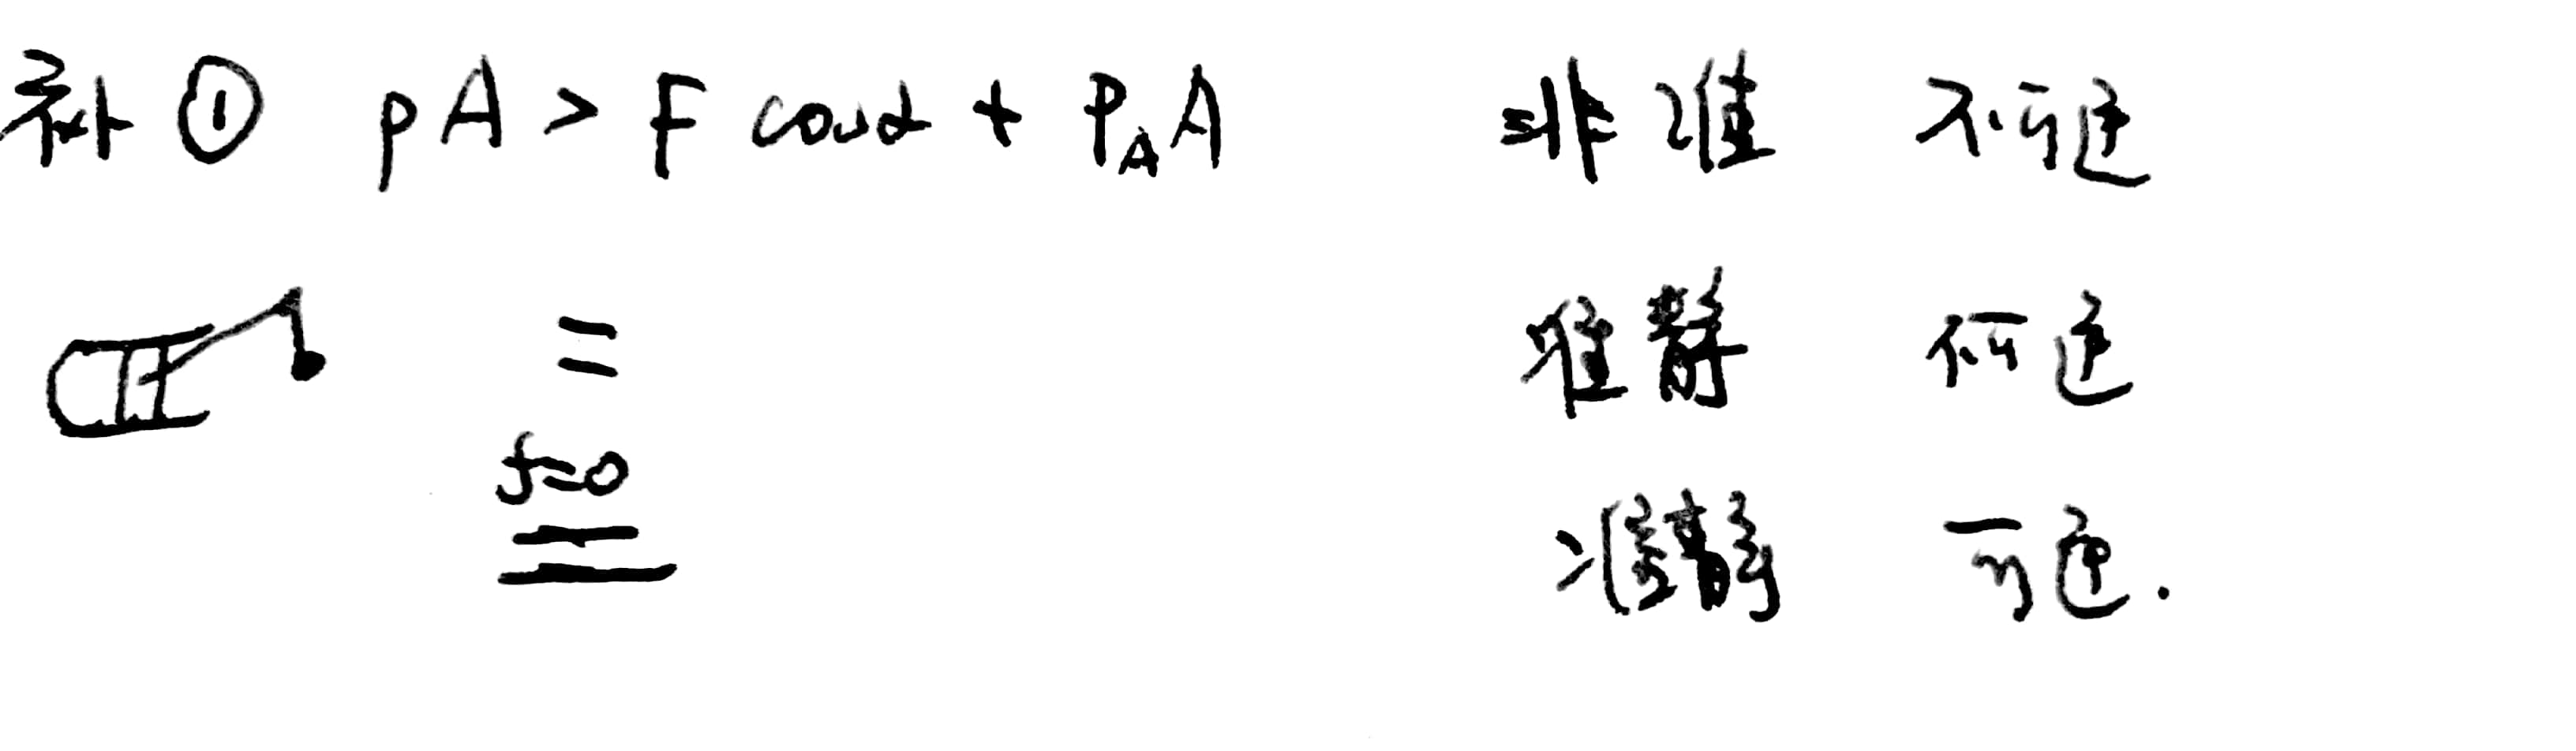 补 ① pA > F cosα + PAA 非准 不可逆
= 准静 不可逆
f=0
准静 可逆.